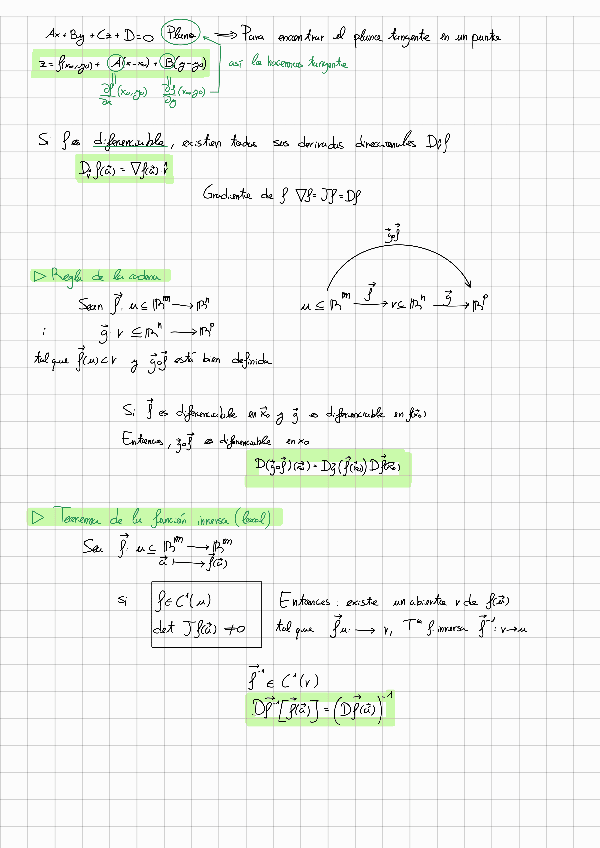 Ax + By + Cz + D = 0 Plano ⟹ Para encontrar el plano tangente en un punto
z = f(x₀,y₀) + A(x-x₀) + B(y-y₀) así lo hacemos tangente
∂f/∂x (x₀,y₀) ∂f/∂y (x₀,y₀)
Si f es diferenciable, existen todas sus derivadas direccionales Dv̂f
Dv̂f(a⃗) = ∇f(a⃗) v̂
Gradiente de f ∇f = Jf = Df
g⃗∘f⃗
▷ Regla de la cadena
Sean f⃗: u ⊆ ℝᵐ → ℝⁿ
u ⊆ ℝᵐ →f⃗ v ⊆ ℝⁿ →g⃗ ℝᵖ
i g⃗ v ⊆ ℝⁿ → ℝᵖ
tal que f⃗(u) ⊂ v y g⃗∘f⃗ está bien definida
Si f⃗ es diferenciable en x⃗₀ y g⃗ es diferenciable en f(x₀)
Entonces, g⃗∘f⃗ es diferenciable en x₀
D(g⃗∘f⃗)(x⃗₀) = Dg⃗(f⃗(x⃗₀)) Df⃗(x⃗₀)
▷ Teorema de la función inversa (local)
Sea f⃗: u ⊆ ℝᵐ → ℝᵐ
a⃗ → f⃗(a⃗)
si f ∈ C¹(u) Entonces: existe un abierto v de f(a⃗)
det Jf(a⃗) ≠ 0 tal que f⃗: u → v, f inversa f⃗⁻¹: v → u
f⃗⁻¹ ∈ C¹(v)
Df⃗⁻¹[f⃗(a⃗)] = (Df⃗(a⃗))⁻¹